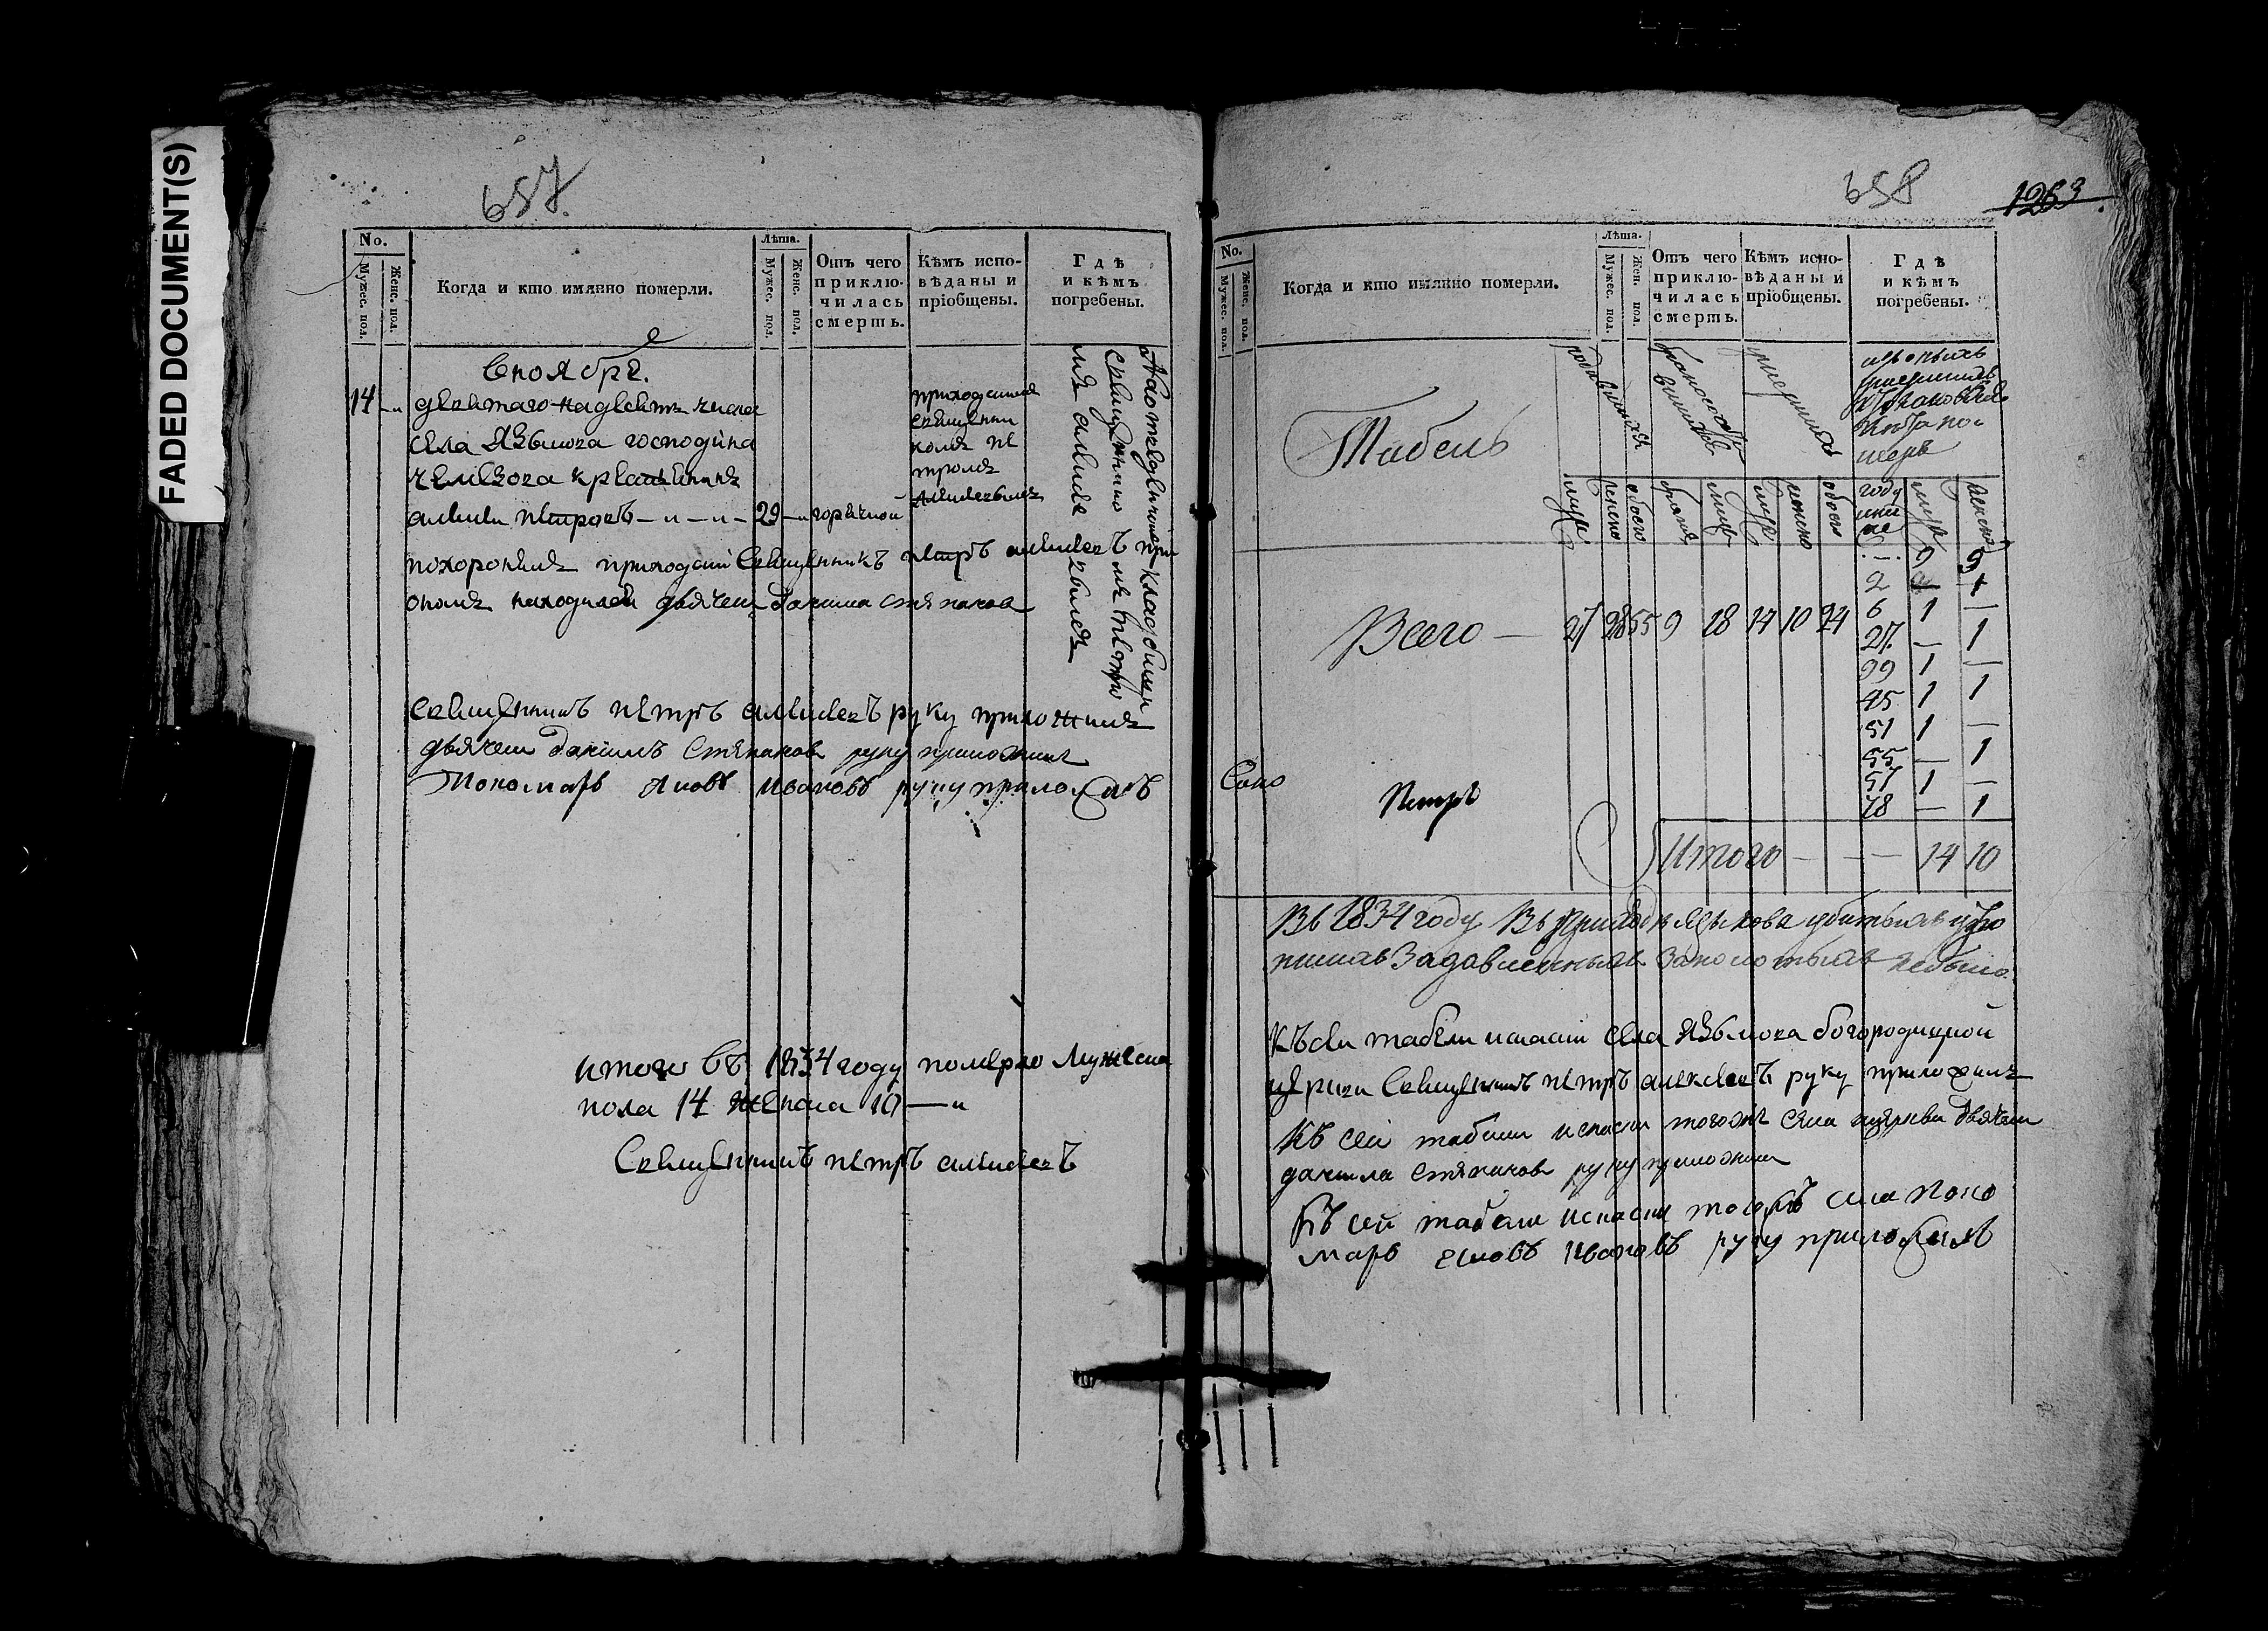 FADED DOCUMENT(S)
657.
No.
Мужес. пол.
Женс. пол.
Когда и кто имянно померли.
Лѣта.
Мужес. пол.
Женс. пол.
Отъ чего приклю-
чилась
смерть.
Кѣмъ испо-
вѣданы и
пріобщены.
Гдѣ
и кѣмъ
погребены.
ноября.
14 девятаго надесять числа
села Языкова господина
крестьянинъ
алексей петровъ — и — и — 29 — и горячкой
приходскимъ
священни
комъ пе
тромъ
алексѣевымъ
на отведенномъ кладбищи
священникомъ петро
мъ алексеевымъ
похоронилъ приходский священникъ петръ алексеевъ при
ономъ находился дьячекъ данила степановъ
священникъ петръ алексеевъ руку приложилъ
дьячекъ данилъ степановъ руку приложилъ
Пономарь Яковъ Ивановъ руку приложилъ
итого въ 1834 году померло мужеска
пола 14 женска 10 — и
Священникъ петръ алексеевъ
658
1263.
No.
Мужес. пол.
Женс. пол.
Когда и кто имянно померли.
Лѣта.
Мужес. пол.
Жен. пол.
Отъ чего
приклю-
чилась
смерть.
Кѣмъ испо-
вѣданы и
пріобщены.
Гдѣ
и кѣмъ
погребены.
Табель
родившихся
умершихъ
Всего — 27 28 55 9 18 14 10 24
— 9 5
6 1 —
27. — 1
45 1 1
51 1 —
55 — 1
57 1 —
78 — 1
Петръ
Итого — — 14 10
Въ 1834 году Въ приходѣ Языкова убитыхъ
Задавленныхъ Заколотыхъ небыло.
Къ сей табели села Языкова богородицкой
церкви Священникъ петръ алексеевъ руку приложилъ
Къ сей табели тогожъ села церкви дьячекъ
данила степановъ руку приложилъ
Къ сей табели тогожъ села Поно
марь Яковъ Ивановъ руку приложилъ